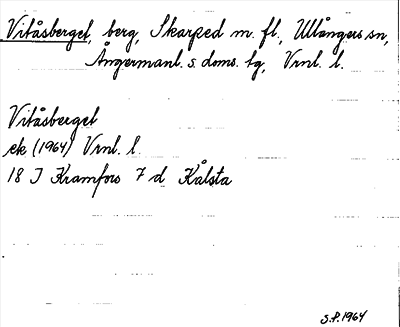 Vitåsberget, berg, Skarped m. fl., Ullångers sn,
Ångermanl. s. doms. tg, Vrnl. l.
Vitåsberget
ek (1964) Vrnl. l.
18 I Kramfors 7 d Kålsta
S.P. 1964